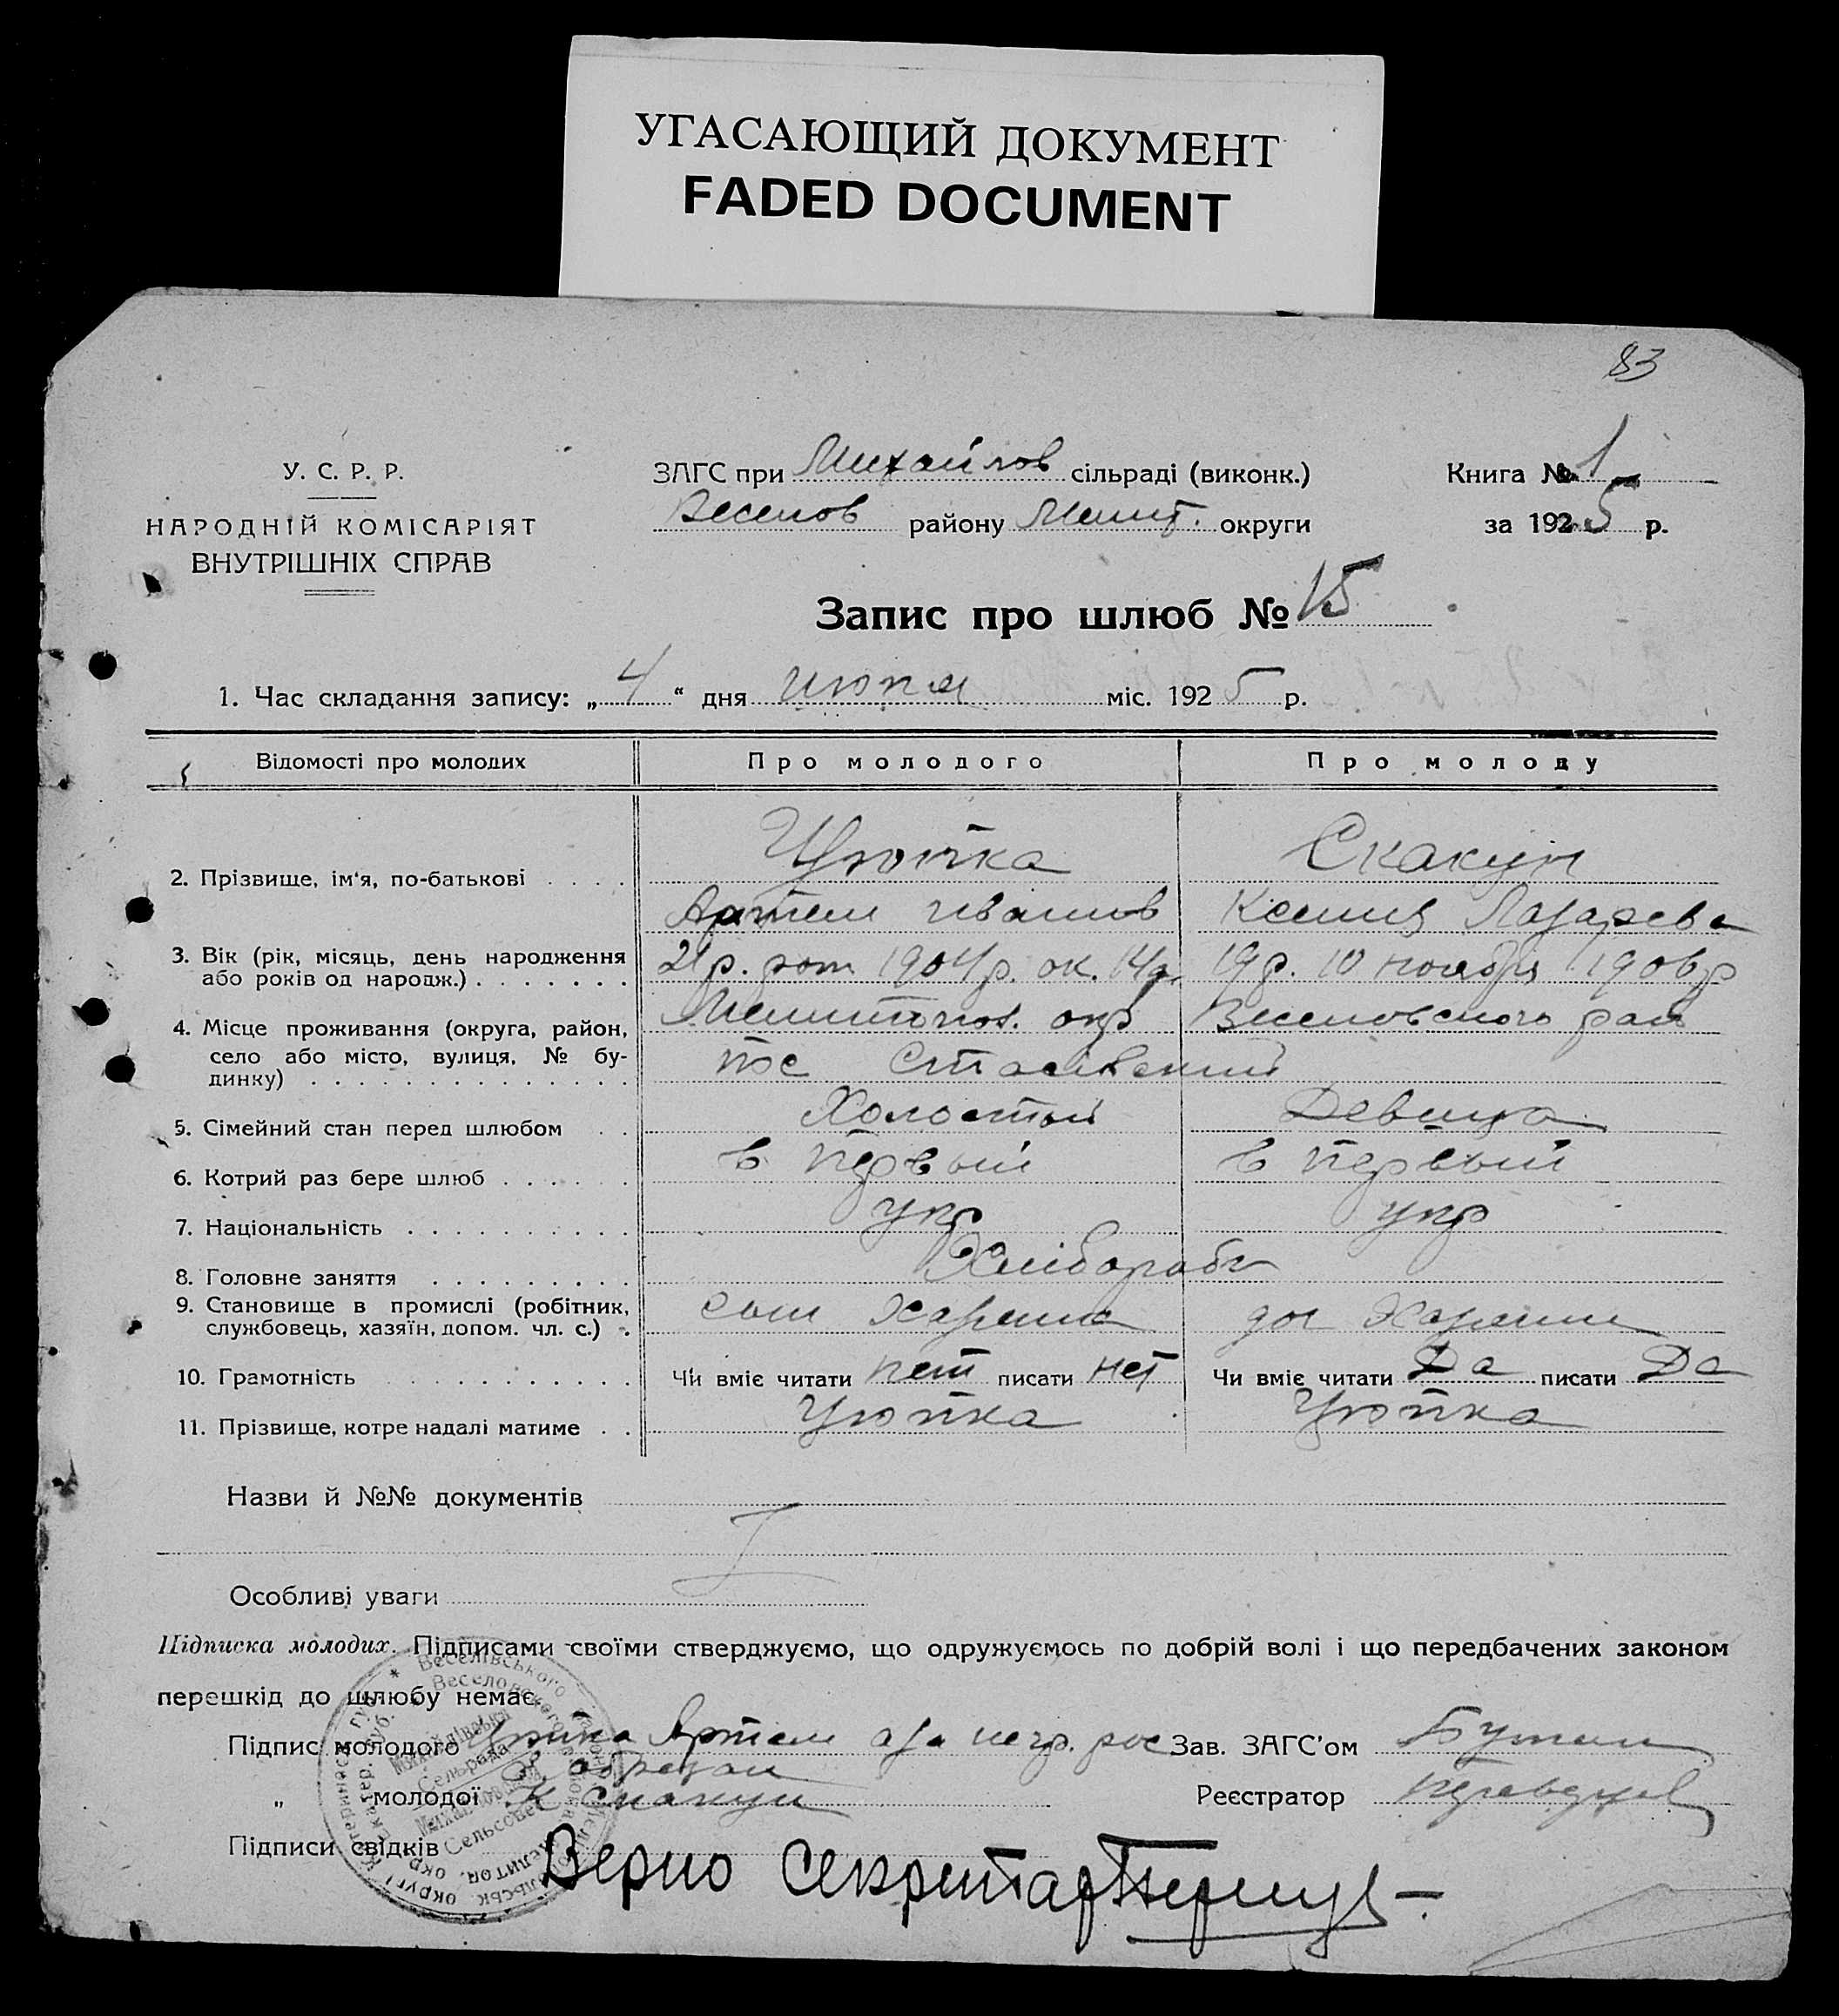 УГАСАЮЩИЙ ДОКУМЕНТ
FADED DOCUMENT
83
У. С. Р. Р.
НАРОДНІЙ КОМІСАРІЯТ
ВНУТРІШНІХ СПРАВ
ЗАГС при Михайлов сільраді (виконк.)
Веселов району Мелит. округи
Книга № 1
за 1925 р.
Запис про шлюб № 15
1. Час складання запису: „4“ дня июля міс. 1925 р.
Відомості про молодих Про молодого Про молоду
2. Прізвище, ім'я, по-батькові . . . . Цюпка Скакун
Артем Иванов Ксения Лазарева
3. Вік (рік, місяць, день народження або років од народж.) . . . . . . . 21 р. 1904 р. ок. 19 р. 10 ноября 1906 р
4. Місце проживання (округа, район, село або місто, вулиця, № будинку) . . . . . . . . . . . . . . Мелитопол. окр Веселовского рай
пос
5. Сімейний стан перед шлюбом . . Холостый Девица
6. Котрий раз бере шлюб . . . . . . в первый в первый
7. Національність . . . . . . . . . . укр укр
8. Головне заняття . . . . . . . . . Хлібороби
9. Становище в промислі (робітник, службовець, хазяїн, допом. чл. с.) . сын дог
10. Грамотність . . . . . . . . . . . Чи вміє читати нет писати нет Чи вміє читати Да писати Да
11. Прізвище, котре надалі матиме . . Цюпка Цюпка
Назви й №№ документів
Особливі уваги
Підписка молодих. Підписами своїми стверджуємо, що одружуємось по добрій волі і що передбачених законом
перешкід до шлюбу немає.
Підпис молодого Цюпка Артем а за негр. рос Зав. ЗАГС'ом
„ молодої К Скакун Реєстратор
Підписи свідків
Верно Секретар